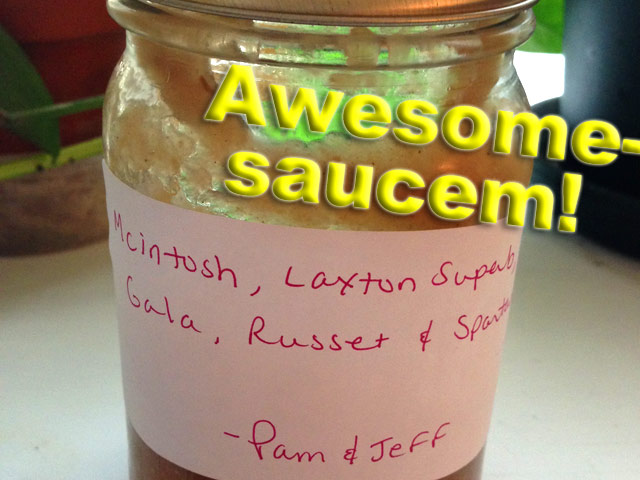 Awesome-
saucem!
Mcintosh, Laxton Superb
Gala, Russet & Spartan
- Pam & Jeff